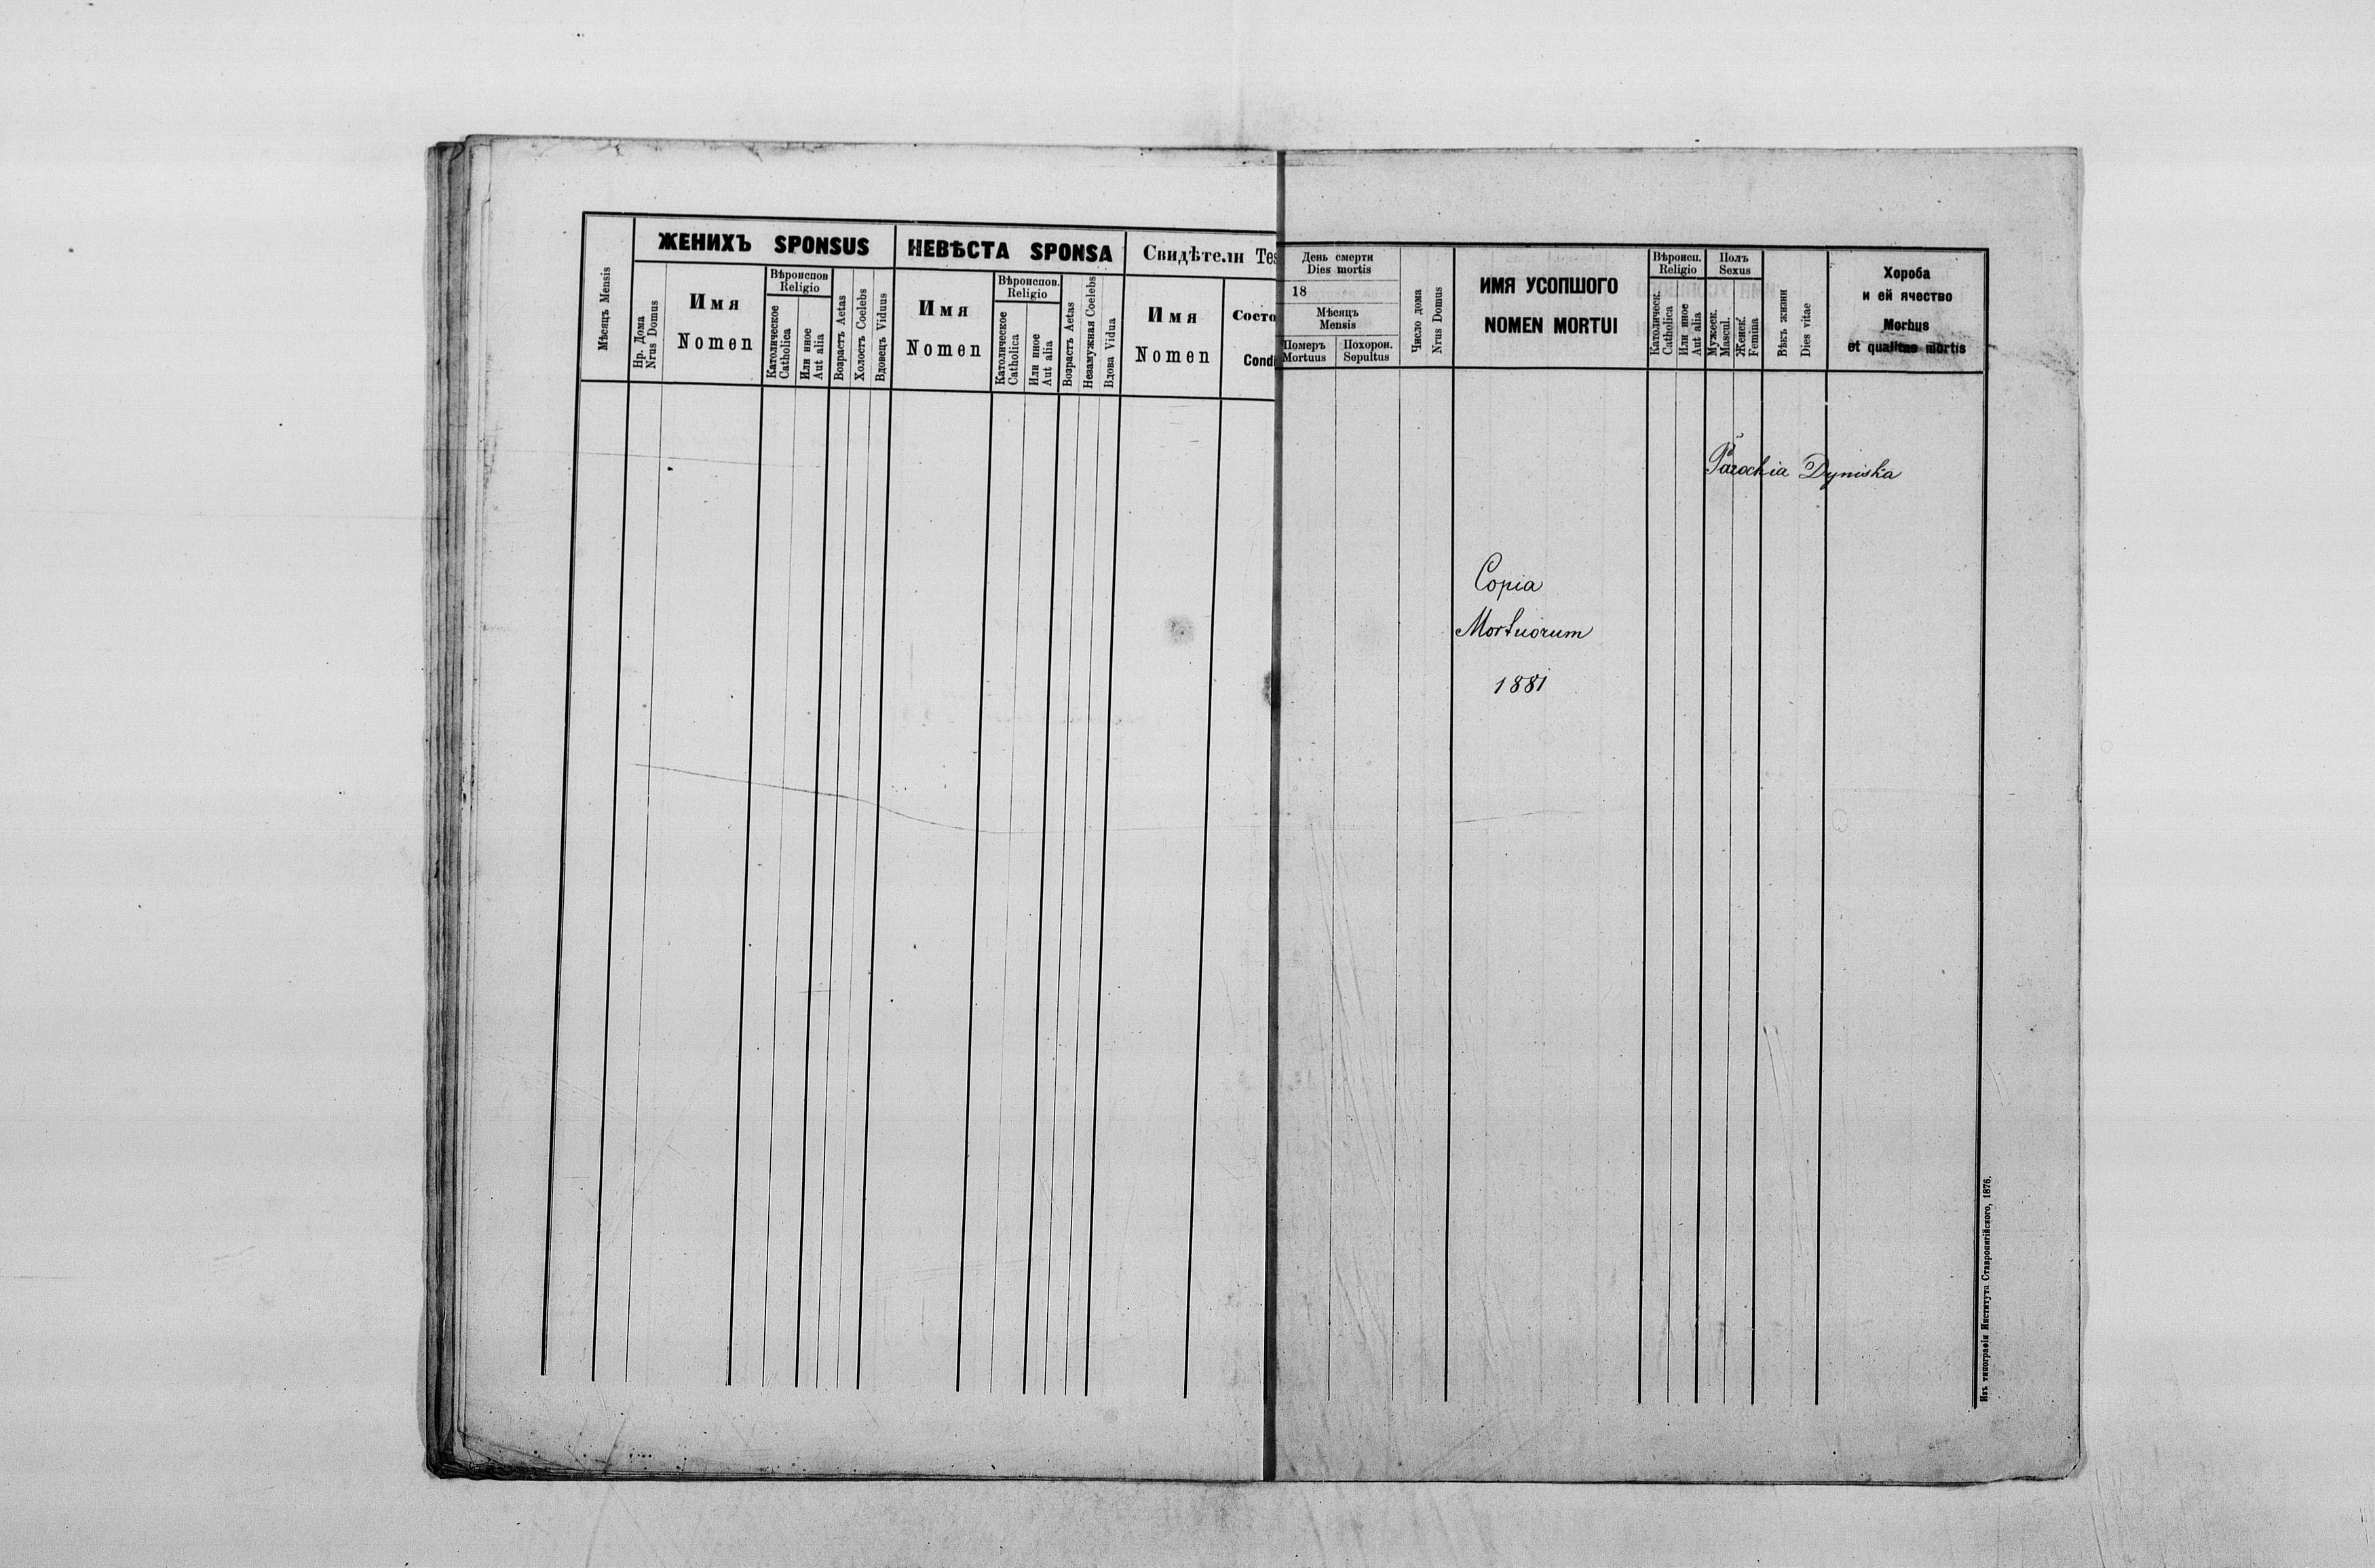 ЖЕНИХЪ SPONSUS
НЕВѢСТА SPONSA
Свидѣтели Tes
Мѣсяцъ Mensis
Нр. Дома
Nrus Domus
Имя
Nomen
Вѣроиспов
Religio
Католическое
Catholica
Или иное
Aut alia
Возрастъ Aetas
Холостъ Coelebs
Вдовецъ Viduus
Имя
Nomen
Вѣроиспов.
Religio
Католическое
Catholica
Или иное
Aut alia
Возрастъ Aetas
Незамужная Coelebs
Вдова Vidua
Имя
Nomen
Состо
Condi
День смерти
Dies mortis
18
Мѣсяцъ
Mensis
Померъ
Mortuus
Похорон.
Sepultus
Число дома
Nrus Domus
ИМЯ УСОПШОГО
NOMEN MORTUI
Вѣроисп.
Religio
Католическ.
Catholica
Или иное
Aut alia
Полъ
Sexus
Мужеск.
Mascul.
Женск.
Femina
Вѣкъ жизни
Dies vitae
Хороба
и ей ячество
Morbus
et qualitas mortis
Parochia Dyniska
Copia
Mortuorum
1881
Изъ типографіи Института Ставропигійского, 1876.